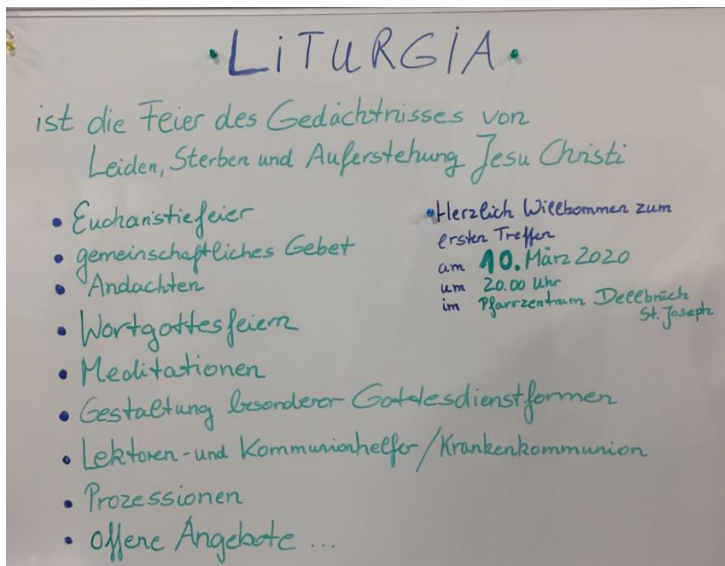 • LiTURGiA •
ist die Feier des Gedächtnisses von
Leiden, Sterben und Auferstehung Jesu Christi
• Eucharistiefeier
• gemeinschaftliches Gebet
• Andachten
• Wortgottesfeiern
• Meditationen
• Gestaltung besonderer Gottesdienstformen
• Lektoren- und Kommunionhelfer/Krankenkommunion
• Prozessionen
• offene Angebote ...
• Herzlich Willkommen zum
ersten Treffen
am 10. März 2020
um 20.00 Uhr
im Pfarrzentrum Dellbrück
St. Joseph